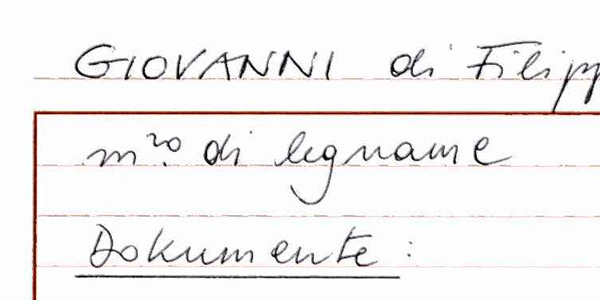 GIOVANNI di Filipp
m^ro. di legname
Dokumente: